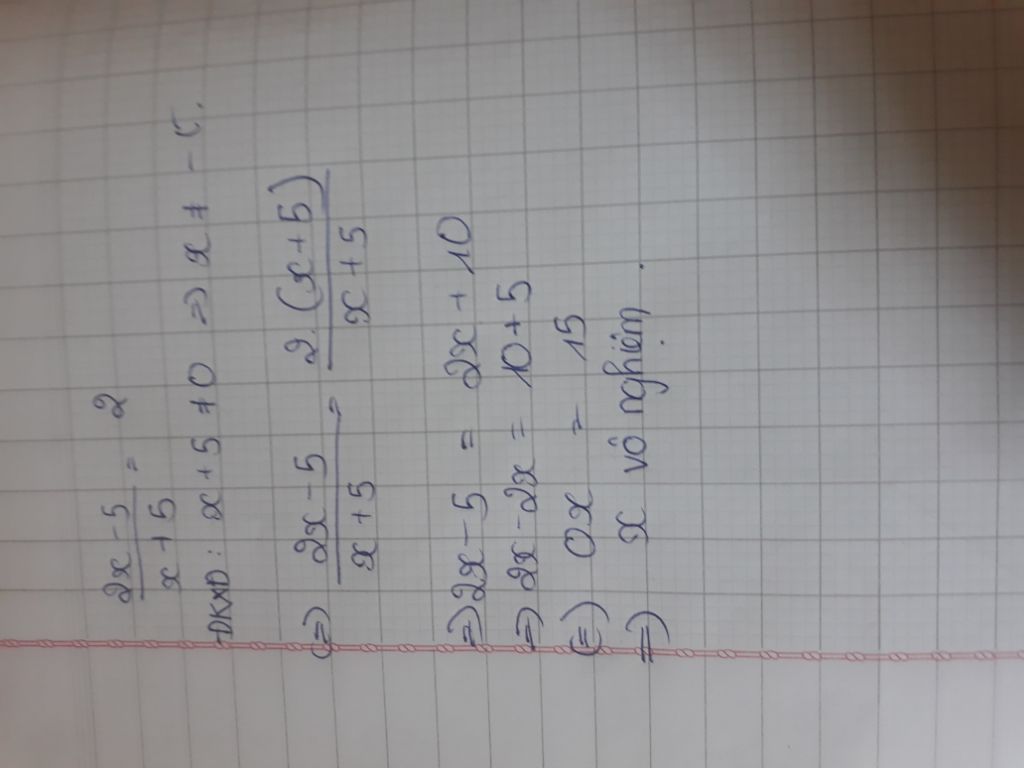 2x - 5 / x + 5 = 2
ĐKXĐ: x + 5 ≠ 0 => x ≠ - 5.
(=) 2x - 5 / x + 5 = 2.(x + 5) / x + 5
=) 2x - 5 = 2x + 10
=) 2x - 2x = 10 + 5
(=) 0x = 15
=) x vô nghiệm.